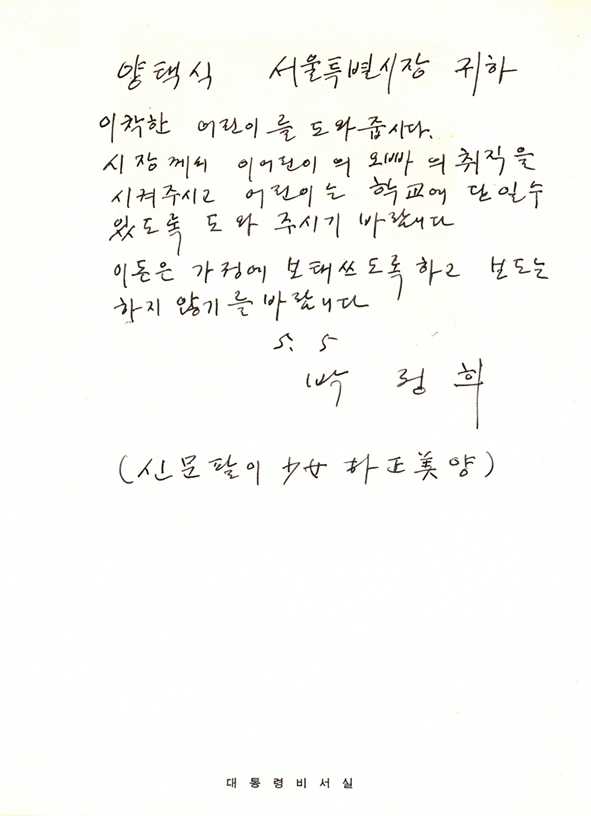 양택식 서울특별시장 귀하
이착한 어린이를 도와줍시다.
시장께서 이어린이의 오빠의 취직을
시켜주시고 어린이는 학교에 단일수
있도록 도와 주시기 바랍니다
이돈은 가정에 보태쓰도록하고 보도는
하지 않기를바랍니다
5. 5
박 정 희
(신문팔이 少女 하正美양)
대통령비서실